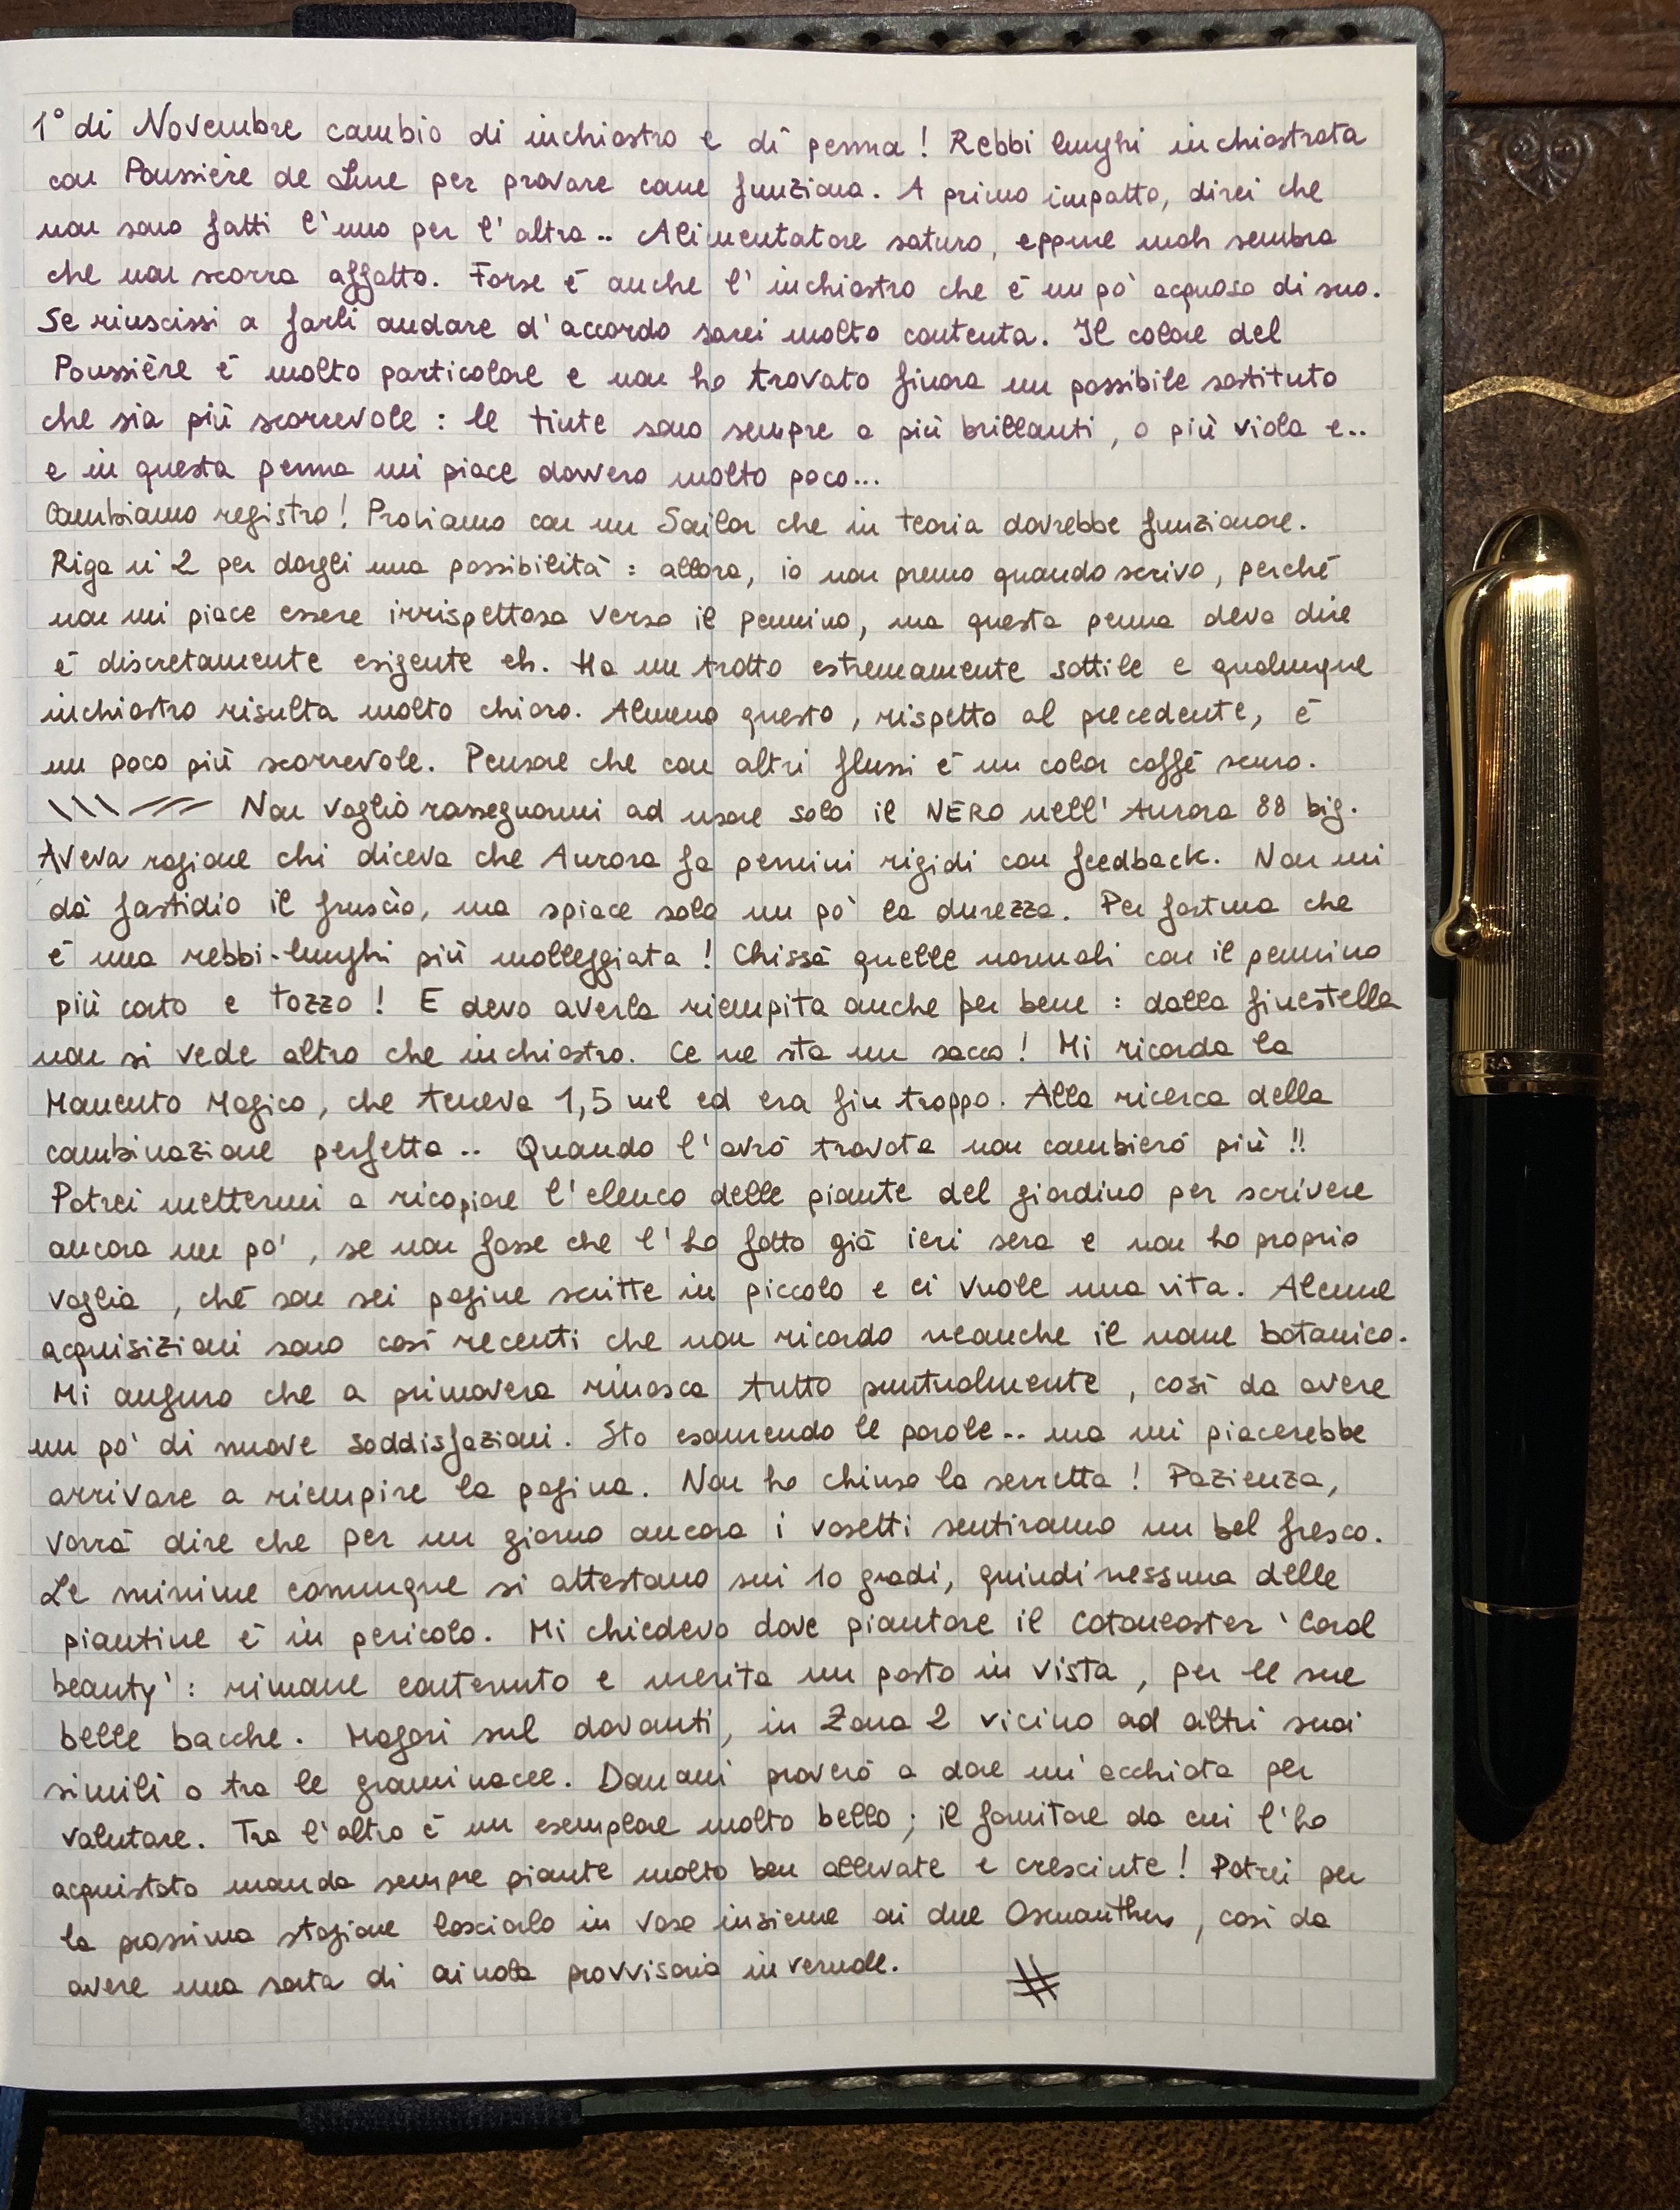 1° di Novembre cambio di inchiostro e di penna! Rebbi lunghi inchiostrata
con Poussière de Lune per provare come funziona. A primo impatto, direi che
non sono fatti l'uno per l'altro.. Alimentatore saturo, eppure mah sembra
che non scorra affatto. Forse è anche l'inchiostro che è un pò acquoso di suo.
Se riuscissi a farli andare d'accordo sarei molto contenta. Il colore del
Poussière è molto particolare e non ho trovato finora un possibile sostituto
che sia più scorrevole: le tinte sono sempre o più brillanti, o più viola e..
e in questa penna mi piace davvero molto poco...
Cambiamo registro! Proviamo con un Sailor che in teoria dovrebbe funzionare.
Riga n° 2 per dargli una possibilità: allora, io non premo quando scrivo, perché
non mi piace essere irrispettosa verso il pennino, ma questa penna devo dire
è discretamente esigente eh. Ha un tratto estremamente sottile e qualunque
inchiostro risulta molto chiaro. Almeno questo, rispetto al precedente, è
un poco più scorrevole. Pensare che con altri flussi è un color caffè scuro.
Non voglio rassegnarmi ad usare solo il NERO nell'Aurora 88 big.
Aveva ragione chi diceva che Aurora fa pennini rigidi con feedback. Non mi
dà fastidio il fruscio, ma spiace solo un pò la durezza. Per fortuna che
è una rebbi-lunghi più molleggiata! Chissà quelle normali con il pennino
più corto e tozzo! E devo averla riempita anche per bene: dalla finestella
non si vede altro che inchiostro. Ce ne sta un sacco! Mi ricorda la
Momento Magico, che teneva 1,5 ml ed era fin troppo. Alla ricerca della
combinazione perfetta.. Quando l'avrò trovata non cambierò più!!
Potrei mettermi a ricopiare l'elenco delle piante del giardino per scrivere
ancora un po', se non fosse che l'ho fatto già ieri sera e non ho proprio
voglia, ché son sei pagine scritte in piccolo e ci vuole una vita. Alcune
acquisizioni sono così recenti che non ricordo neanche il nome botanico.
Mi auguro che a primavera rinasca tutto puntualmente, così da avere
un po' di nuove soddisfazioni. Sto esaurendo le parole.. ma mi piacerebbe
arrivare a riempire la pagina. Non ho chiuso la serretta! Pazienza,
vorrà dire che per un giorno ancora i vasetti sentiranno un bel fresco.
Le minime comunque si attestano sui 10 gradi, quindi nessuna delle
piantine è in pericolo. Mi chiedevo dove piantare il Cotoneaster 'Coral
beauty': rimane contenuto e merita un posto in vista, per le sue
belle bacche. Magari sul davanti, in Zona 2 vicino ad altri suoi
simili o tra le graminacee. Domani proverò a dare un'occhiata per
valutare. Tra l'altro è un esemplare molto bello; il fornitore da cui l'ho
acquistato manda sempre piante molto ben allevate e cresciute! Potrei per
la prossima stagione lasciarlo in vaso insieme ai due Osmanthus, così da
avere una sorta di aiuola provvisoria invernale. #